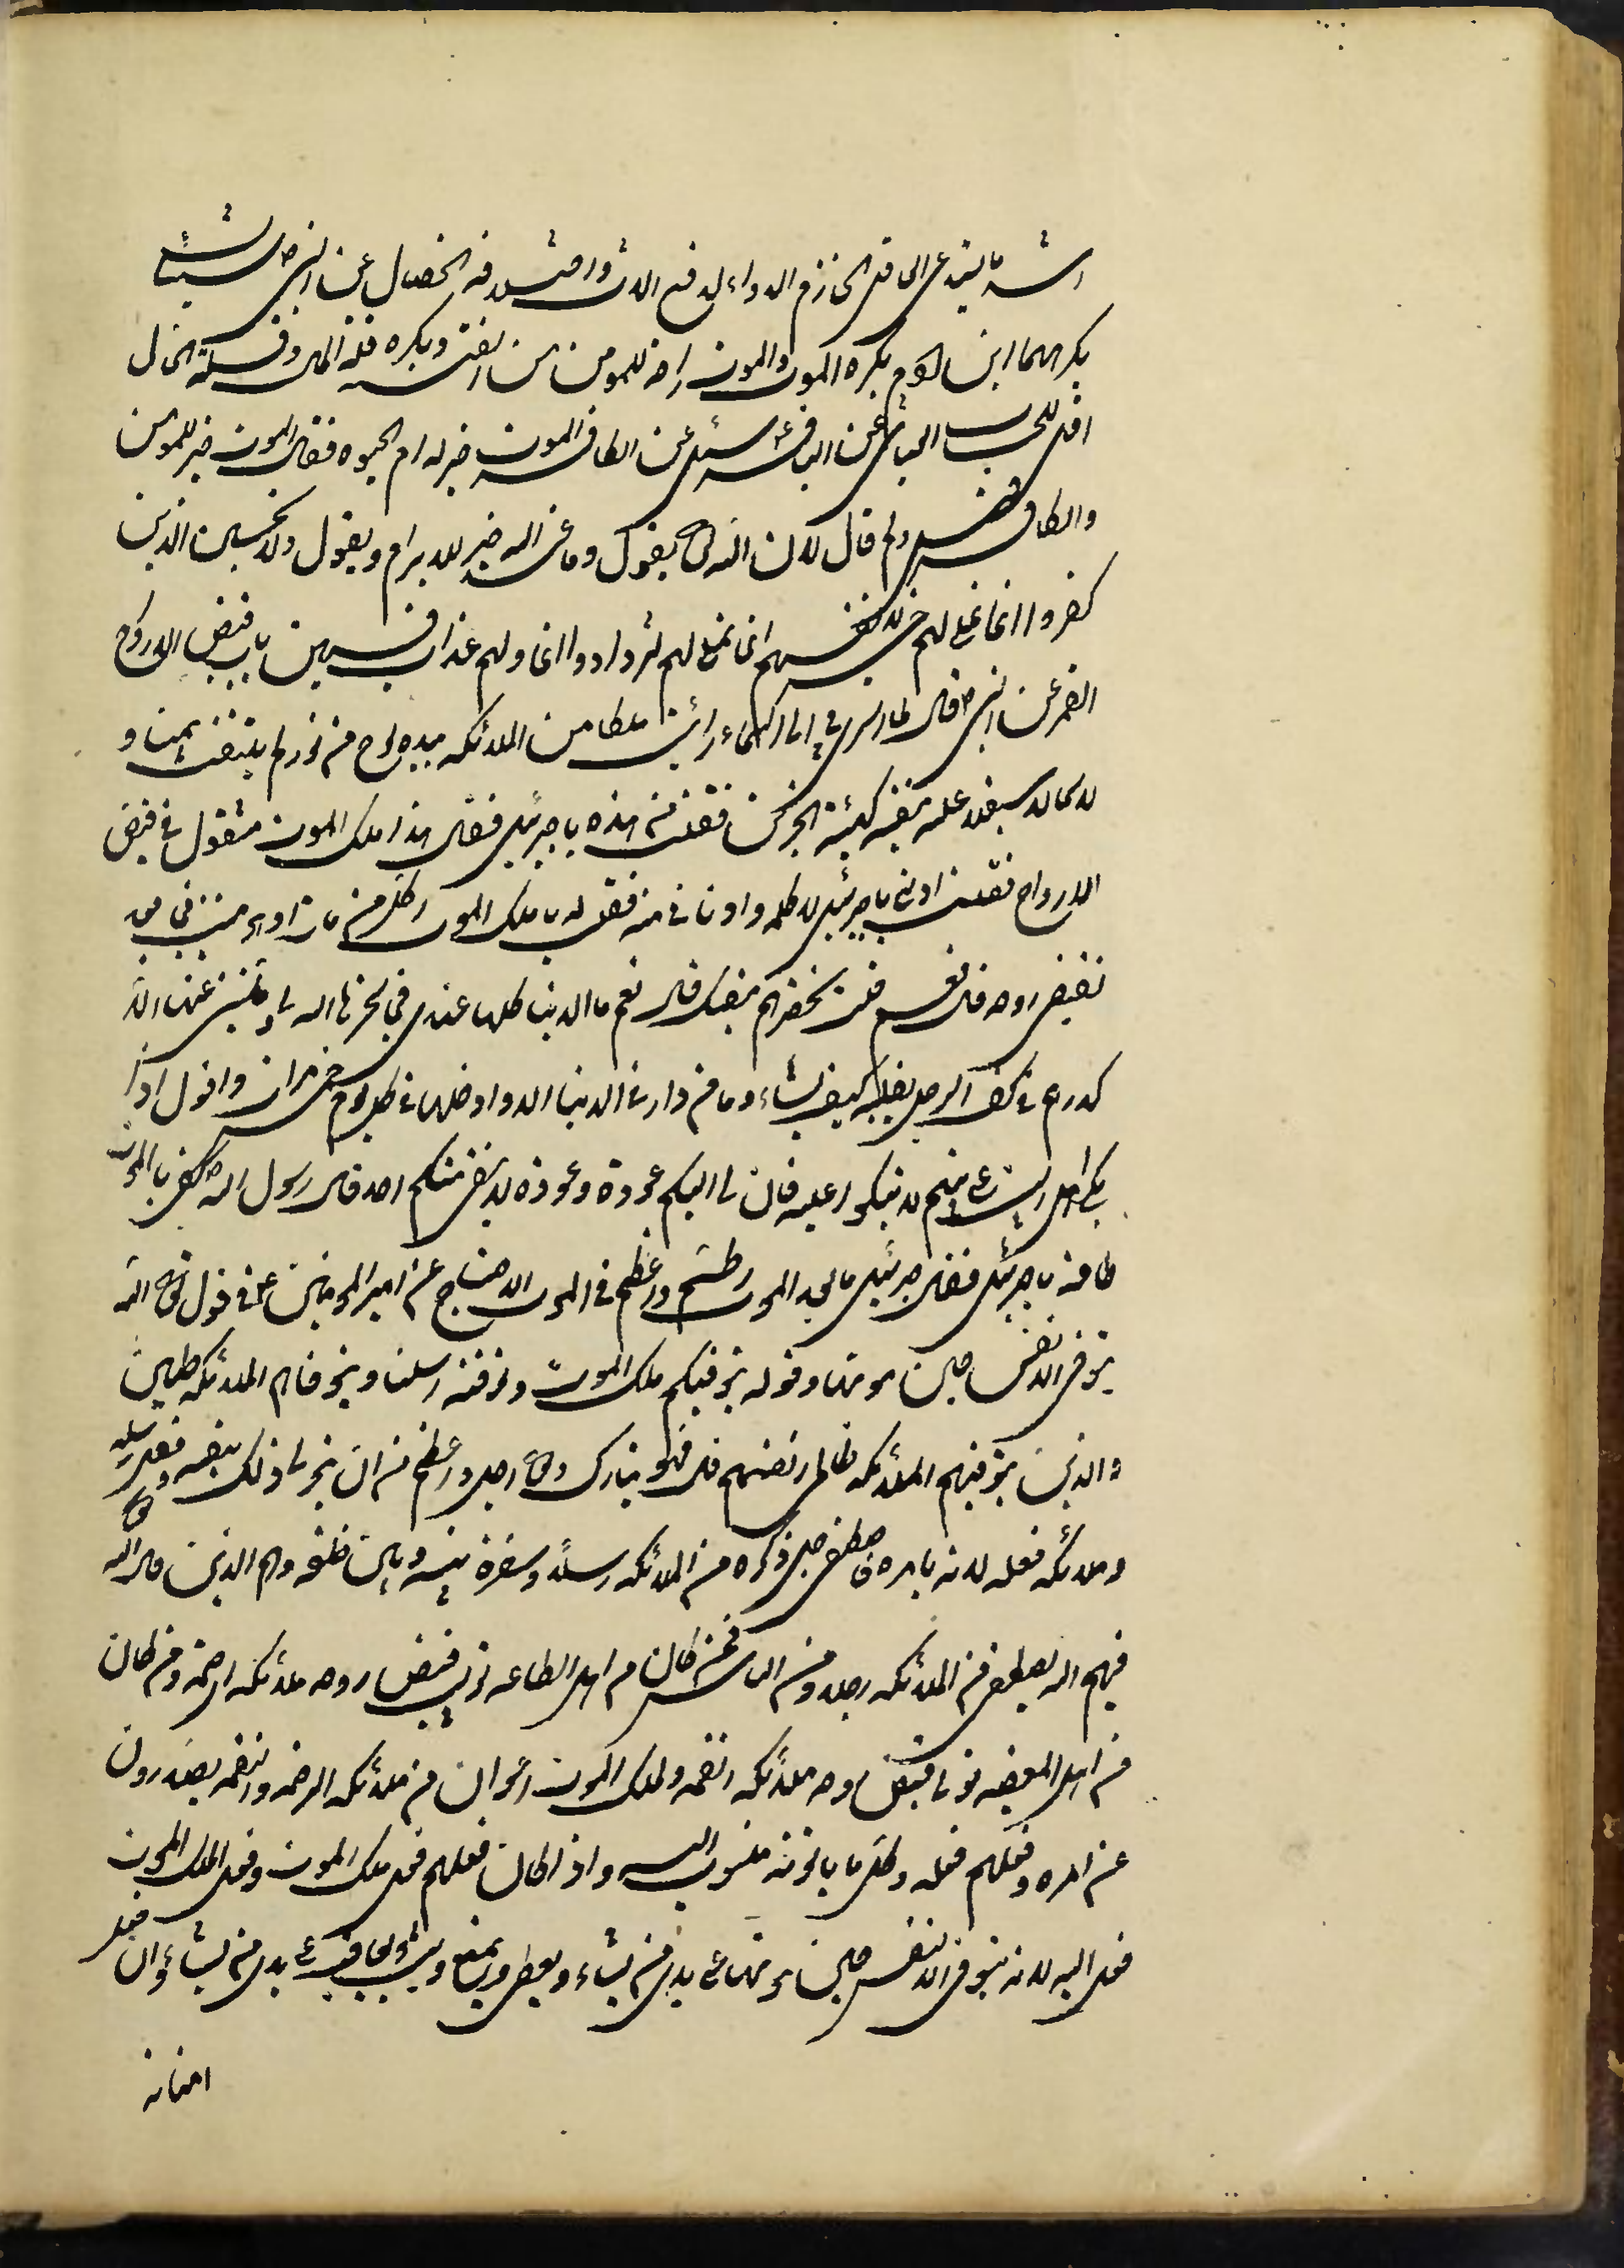 اشد ما يستدعى العاقل الحازم الدواء لدفع الافات و امتثاله الخصال عن النبى ص شيئان
يكرههما ابن ادم يكره الموت و الموت راحة للمؤمن من الفتنة و يكره قلة المال و قلة المال
اقل للحساب العياشى عن الباقر ع سئل عن الكافر الموت خير له ام الحيوة فقال الموت خير للمؤمن
والكافر ولم قال لان الله تع يقول وما عند الله خير للابرار و يقول ولا يحسبن الذين
كفروا انما نملى لهم خير لانفسهم انما نملى لهم ليزدادوا اثما ولهم عذاب مهين باب قبض الارواح
القمر عن النبى ص قال لما اسرى بى الى السماء رايت ملكا من الملائكة بيده لوح من نور لا يلتفت يمينا و
لا شمالا مقبلا عليه كهيئة الحزين فقلت من هذا يا جبرئيل فقال هذا ملك الموت مشغول فى قبض
الارواح فقلت ادننى يا جبرئيل لاكلمه وادنانى منه فقلت له يا ملك الموت اكل من مات او هو ميت فيما بعد
تقبض روحه قال نعم قلت تحضرهم بنفسك قال نعم ما الدنيا كلها عندى فيما سخرها الله لى و مكننى عنها الا
كدرهم فى كف الرجل يقلبه كيف يشاء وما من دار فى الدنيا الا وادخلها فى كل يوم خمس مرات واقول اذا
بكى اهل البيت على ميتهم لا تبكوا عليه فان لى اليكم عودة وعودة لا يبقى منكم احد قال رسول الله ص كفى بالموت
طامة يا جبرئيل فقال جبرئيل ما بعد الموت اطم واعظم من الموت الاحتجاج عن امير المؤمنين ع فى قول تع الله
يتوفى الانفس حين موتها وقوله يتوفيكم ملك الموت وتوفته رسلنا و يتوفاهم الملائكة طيبين
والذين تتوفيهم الملائكة ظالمى انفسهم قال فهو تبارك وتع اجل و اعظم من ان يتولى ذلك بنفسه وفعل رسله
وملائكته فعله لانه بامره فاصطفى جل ذكره من الملائكة رسلا وسفرة بينه وبين خلقه وهم الذين قال الله تع
فيهم الله يصطفى من الملائكة رسلا ومن الناس فمن كان من اهل الطاعة تولت قبض روحه ملائكة الرحمة ومن كان
من اهل المعصية تولى قبض روحه ملائكة النقمة ولملك الموت اعوان من ملائكة الرحمة والنقمة يصدرون
عن امره و فعلهم فعله وكل ما ياتونه منسوب اليه واذا كان فعلهم فعل ملك الموت وفعل ملك الموت
فعل الله لانه يتوفى الانفس حين موتها على يد من يشاء و يعطى ويمنع ويثيب ويعاقب على يد من يشاء وان فعل
امنائه